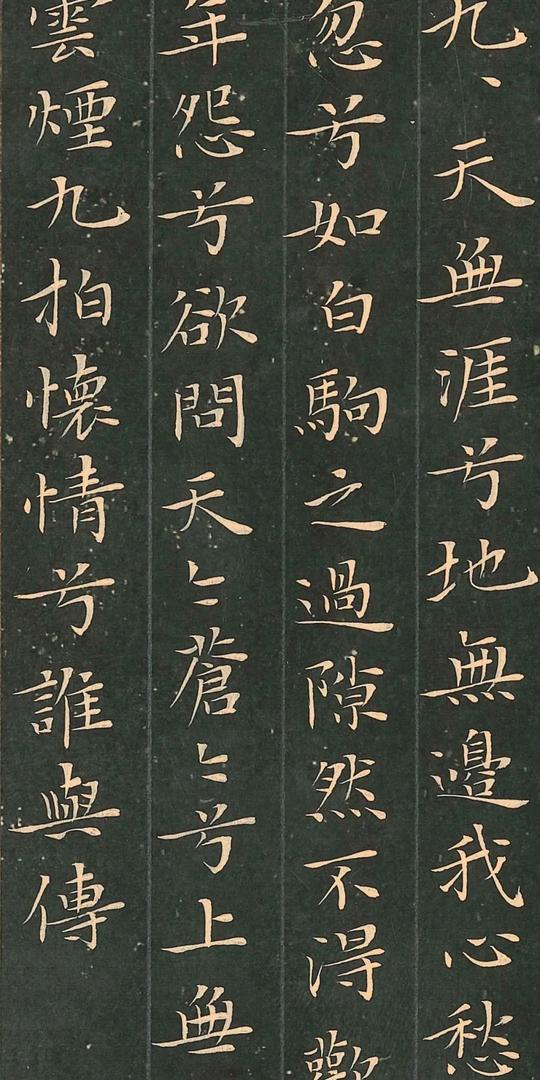 九、天無涯兮地無邊我心愁
忽兮如白駒之過隙然不得歡
年怨兮欲問天〻蒼〻兮上無
雲煙九拍懷情兮誰與傳